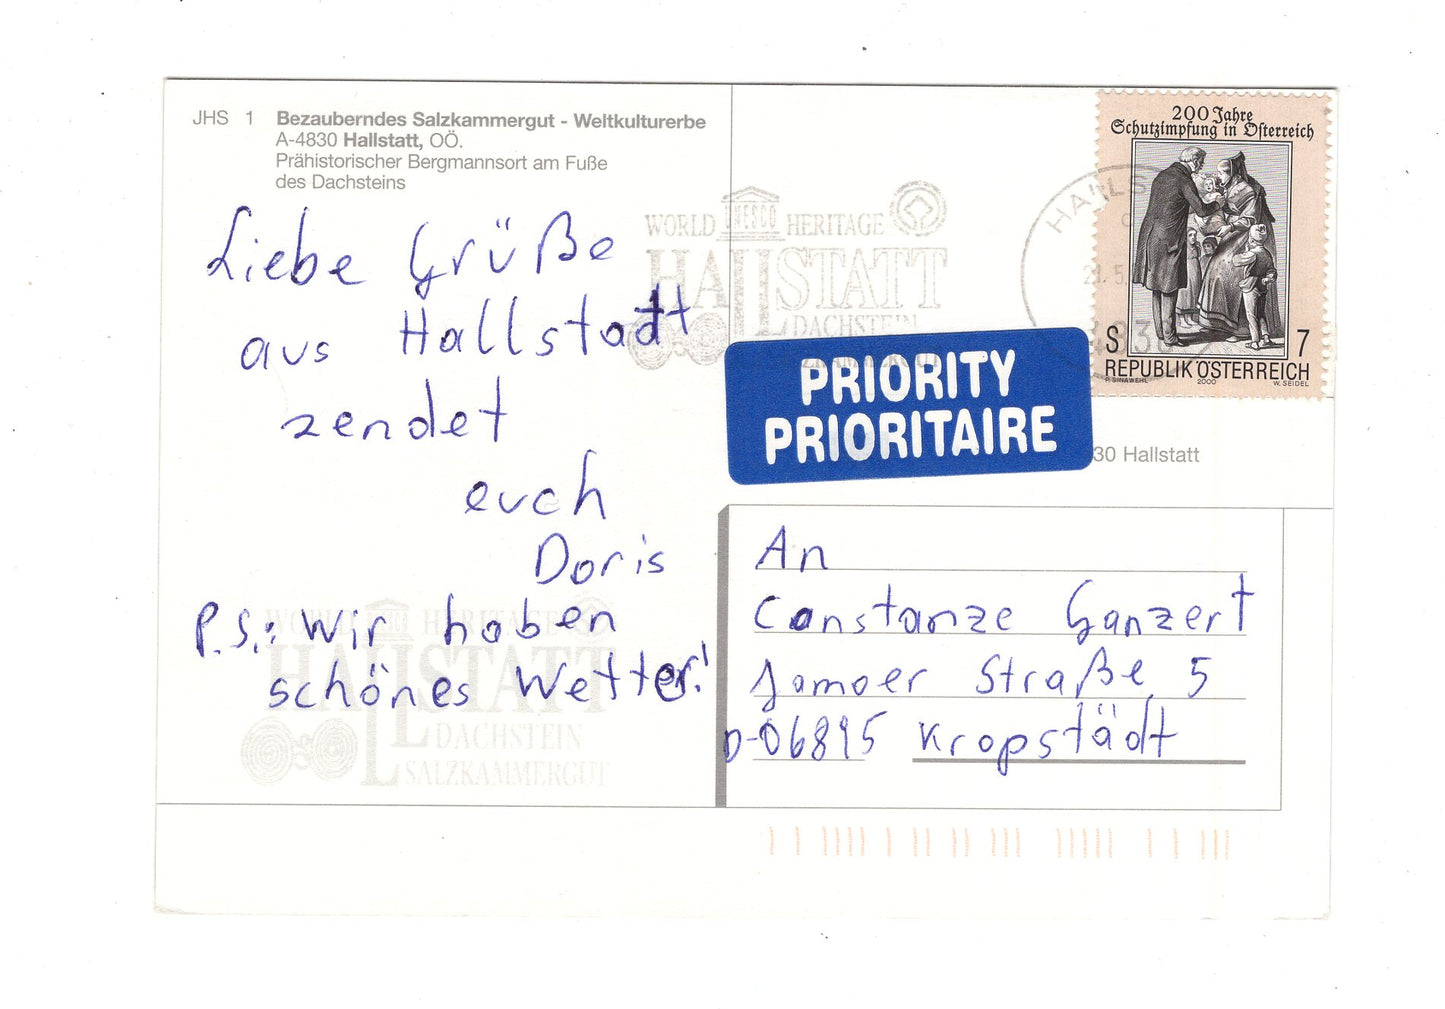 JHS 1 Bezauberndes Salzkammergut - Weltkulturerbe
A-4830 Hallstatt, OÖ.
Prähistorischer Bergmannsort am Fuße
des Dachsteins
Liebe Grüße
aus Hallstatt
zendet
euch
Doris
P.S.: Wir haben
schönes Wetter!
WORLD UNESCO HERITAGE
HALLSTATT
DACHSTEIN
SALZKAMMERGUT
WORLD HERITAGE
HALLSTATT
DACHSTEIN
SALZKAMMERGUT
200 Jahre
Schutzimpfung in Österreich
S 7
REPUBLIK ÖSTERREICH
P. SINAWEHL 2000 W. SEIDEL
PRIORITY
PRIORITAIRE
30 Hallstatt
An
Constanze Ganzert
Jamoer Straße 5
D-06895 Kropstädt